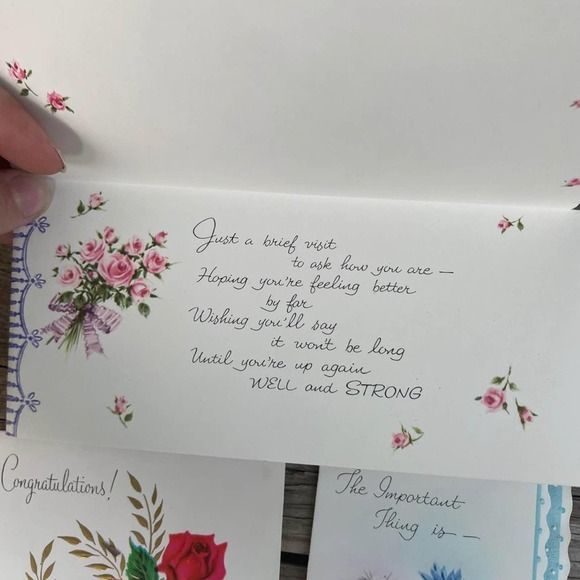 Just a brief visit
to ask how you are —
Hoping you're feeling better
by far
Wishing you'll say
it won't be long
Until you're up again
WELL and STRONG
Congratulations!
The Important
Thing is —